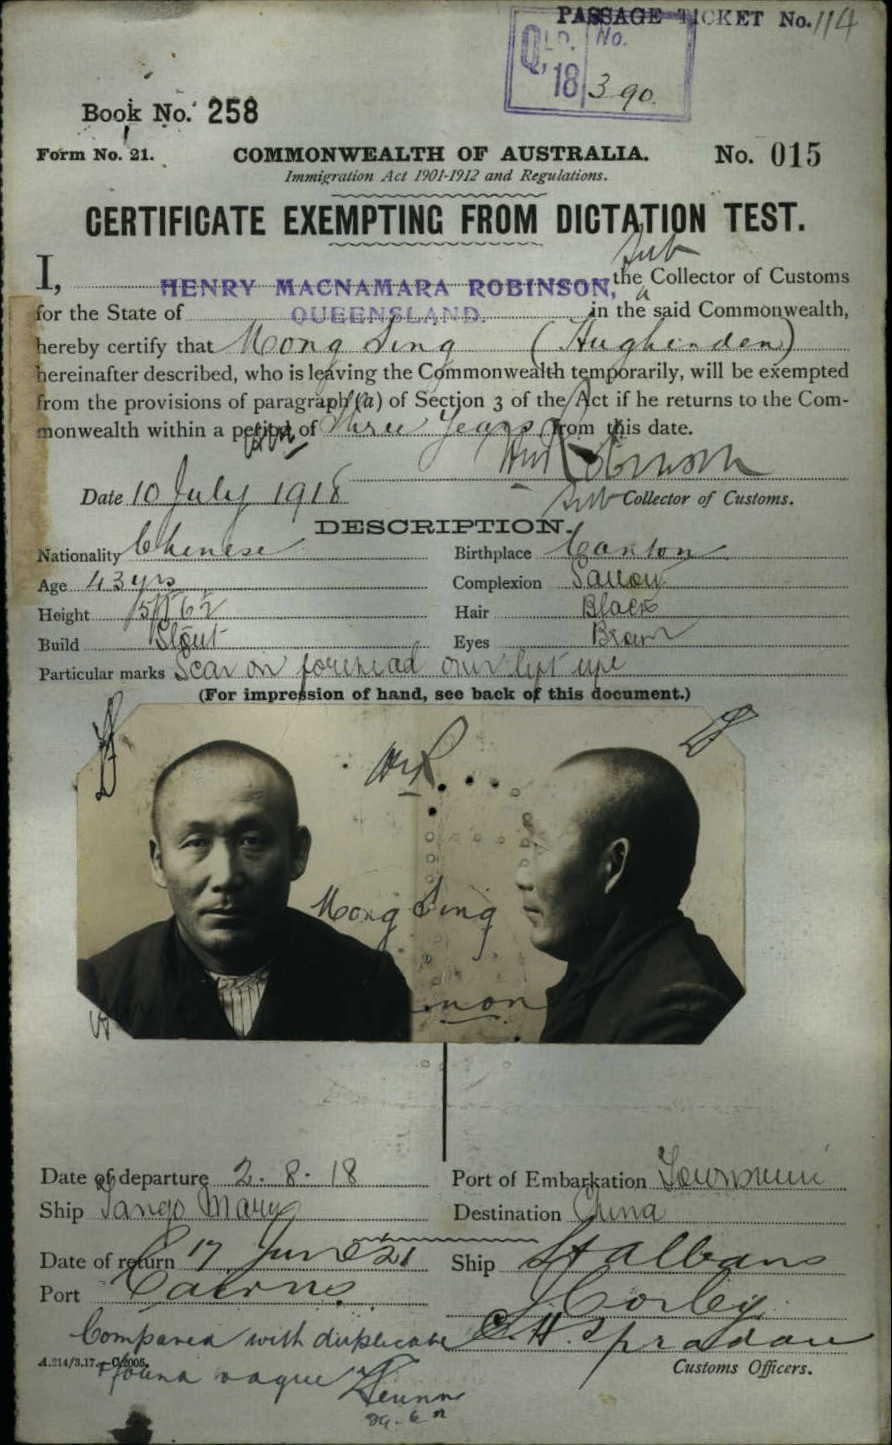 PASSAGE TICKET No. 114
QLD. No.
18/3 90.
Book No. 258
Form No. 21. COMMONWEALTH OF AUSTRALIA. No. 015
Immigration Act 1901-1912 and Regulations.
CERTIFICATE EXEMPTING FROM DICTATION TEST.
I, HENRY MACNAMARA ROBINSON, the Sub Collector of Customs
for the State of QUEENSLAND. in the said Commonwealth,
hereby certify that Mong Sing (Hughenden)
hereinafter described, who is leaving the Commonwealth temporarily, will be exempted
from the provisions of paragraph (a) of Section 3 of the Act if he returns to the Com-
monwealth within a period of Three Years from this date.
HM Robinson
Date 10 July 1918 Sub Collector of Customs.
DESCRIPTION.
Nationality Chinese Birthplace Canton
Age 43 yrs Complexion Sallow
Height 5ft 6½ Hair Black
Build Stout Eyes Brown
Particular marks Scar on forehead over left eye
(For impression of hand, see back of this document.)
HMR
Mong Sing
Date of departure 2. 8. 18 Port of Embarkation Townsville
Ship Tango Maru Destination China
Date of return 17 June 21 Ship St Albans
Port Cairns
Compared with duplicate
A.214/3.17.—C/2005. + found
Customs Officers.